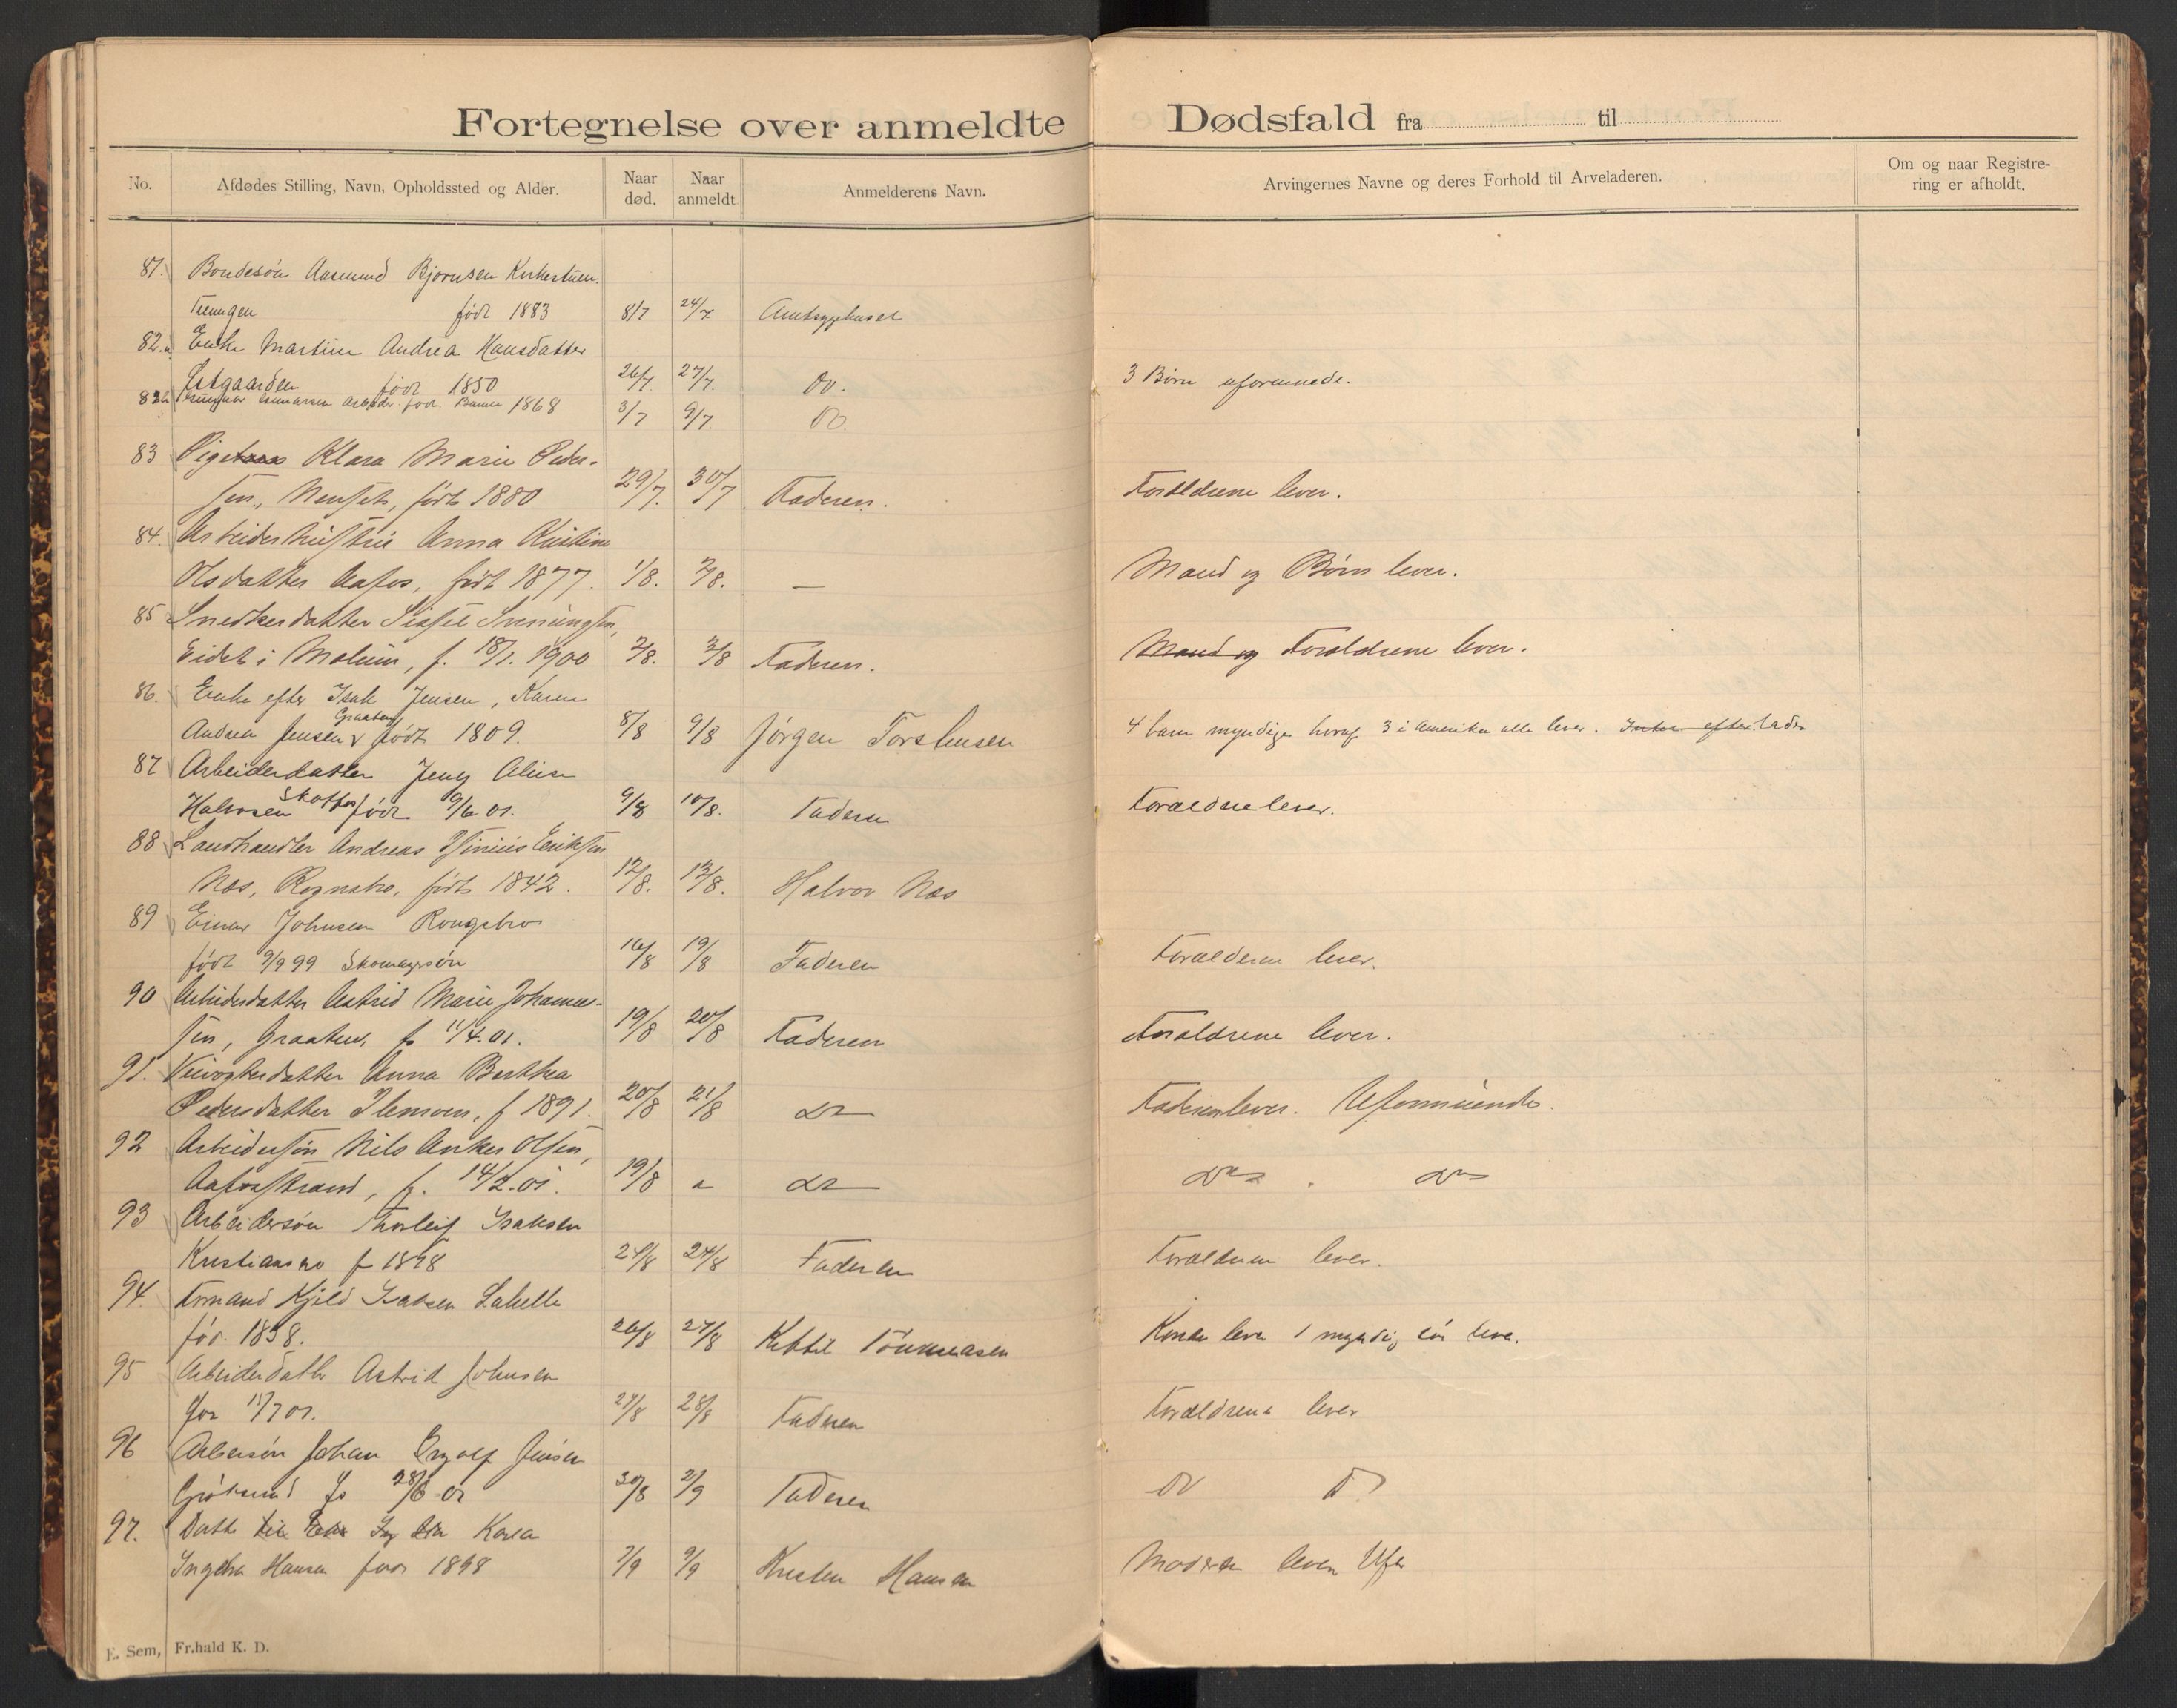 Fortegnelse over anmeldte Dødsfald fra til
No.
Afdødes Stilling, Navn, Opholdssted og Alder.
Naar død.
Naar anmeldt
Anmelderens Navn.
Arvingernes Navne og deres Forhold til Arveladeren.
Om og naar Registre-
ring er afholdt.
81. Bondesøn Aasmund Bjørnsen Kirkestuen.
født 1883 8/7 24/7 Amtsygehuset
82.a Enke Martine Andrea Hansdatter
født 1850 26/7. 27/7. Do. 3 Børn uformuede.
82b Gunnarsen Arbeider. født 1868 3/7 9/7. Do.
83 Pige Klara Marie Peder-
sen, født 1880 29/7. 30/7 Faderen. Forældrene lever.
84. Arbeiderhustru Anna Kristine
Olsdatter Aafos, født 1877. 1/8. 2/8. — Mand og Børn lever.
85 Snedkerdatter Sissel Sveinungsen,
Eidet i Molum, f. 18/1. 1900 2/8. 3/8 Faderen. Mand og Forældrene lever.
86. Enke efter Isak Jensen, Karen
Andrea Jensen Graaten født 1809. 8/8 9/8 Jørgen Torstensen 4 barn myndige hvoraf 3 i Amerika alle lever. Intet efterlader
87 Arbeiderdatter Jenny Alise
Halvorsen Skotfos født 9/6 01. 9/8 10/8. Faderen Forældrene lever.
88 Landhandler Andreas Eriksen
Næs, Rognsbro, født 1842. 12/8. 13/8. Halvor Næs
89 Einar Johnsen Rongsbro
født 9/9 99 Skomagersøn 16/8 19/8 Faderen Forældrene lever.
90 Arbeiderdatter Astrid Marie Johannes-
sen, Graaten, f. 11/4.01. 19/8 20/8 Faderen Forældrene lever.
91. Veivogterdatter Anna Bertha
Pedersdatter f 1891. 20/8 21/8 do Faderen lever. Uformuende.
92 Arbeidersøn Nils Anker Olsen,
Aafosstrand, f. 14/2.01. 19/8 " do do . do
93 Arbeidersøn Thorleif Isaksen
Kristiansro f 1898 24/8 24/8 Faderen Forældrene lever.
94. Kjeld Isaksen Lahelle
fød. 1838. 26/8 27/8 Kittil Tønnesen Kone lever 1 myndig søn leve.
95 Arbeiderdatter Astrid Johnsen
11/7 01. 27/8 28/8 Faderen Forældrene lever
96 Arbersøn Johan Ingolf Jensen
28/6 01 30/8 2/9 Faderen do do
97. Datter til Karen
Ingeborg Hansen født 1898 7/9 9/9 Kristen Hansen Moderen lever Ufor
E. Sem, Fr.hald K. D.